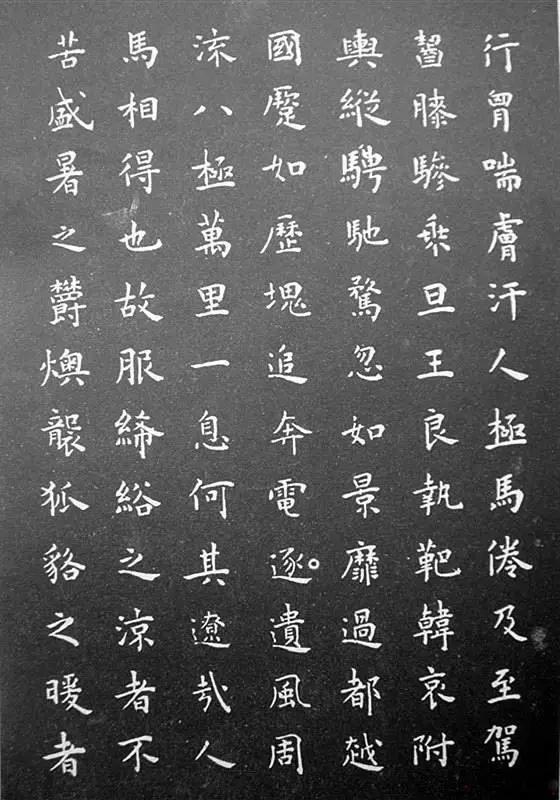 行胷喘膚汗人極馬倦及至駕
齧膝驂乘旦王良執靶韓哀附
輿縱騁馳騖忽如景靡過都越
國蹷如歷塊追奔電逐遺風周
流八極萬里一息何其遼哉人
馬相得也故服絺綌之涼者不
苦盛暑之鬱燠襲狐貉之暖者